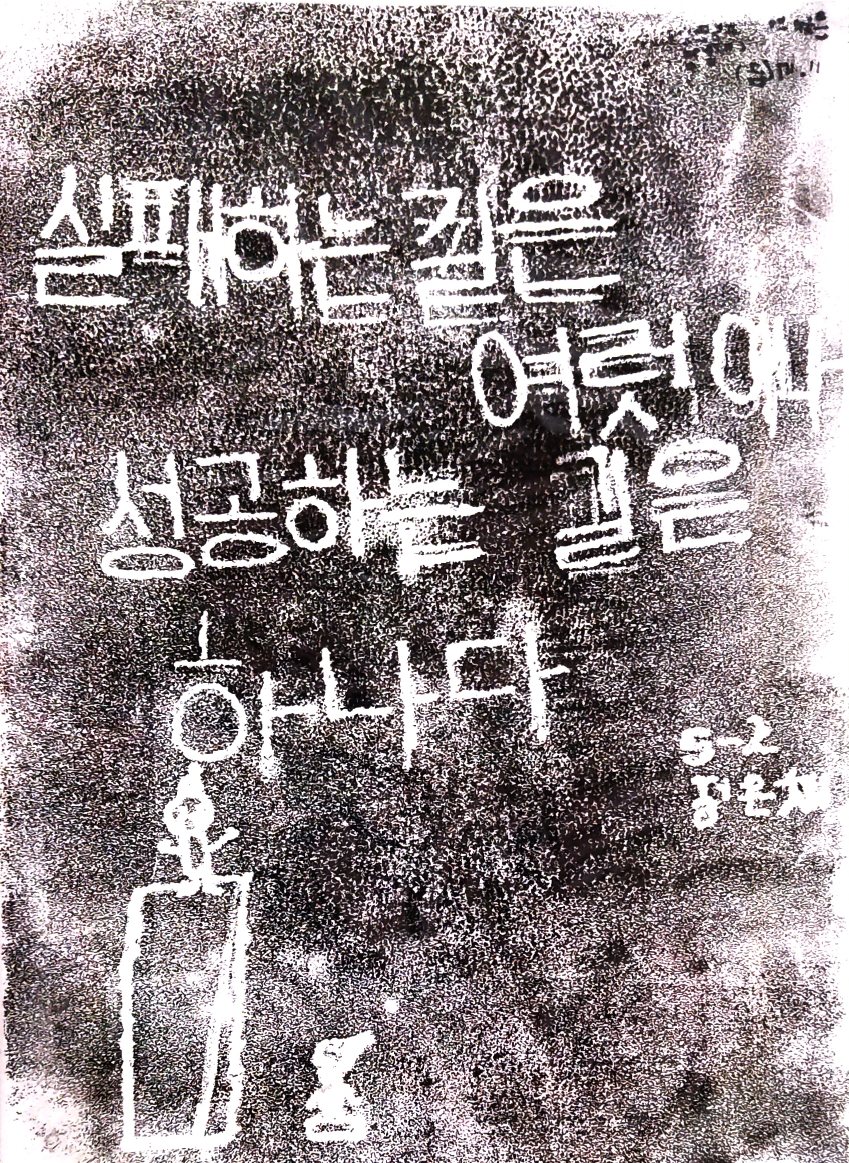 실패하는 길은
여럿이나
성공하는 길은
하나다
5-2